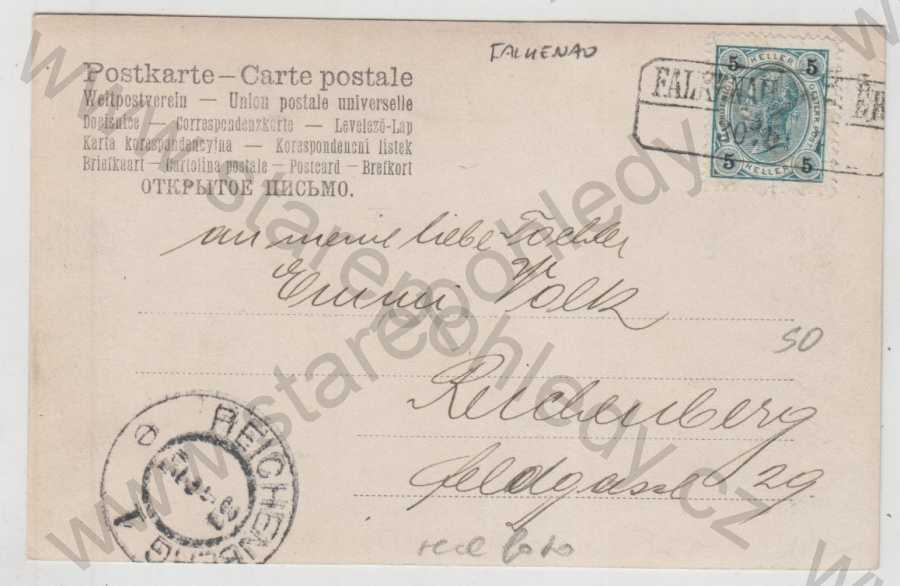 FALKENAU
Postkarte – Carte postale
Weltpostverein — Union postale universelle
Dopisnice — Correspondenzkarte — Levelező-Lap
Karta korespondencyjna — Korespondencni listek
Briefkaart — Cartolina postale — Postcard — Brefkort
ОТКРЫТОЕ ПИСЬМО.
5 HELLER 5
5 HELLER 5
FALKENAU
an meine liebe Tochter
Emmi Volk
50
Reichenberg
Feldgasse 29
REICHENBERG 1
www.starepohledy.cz